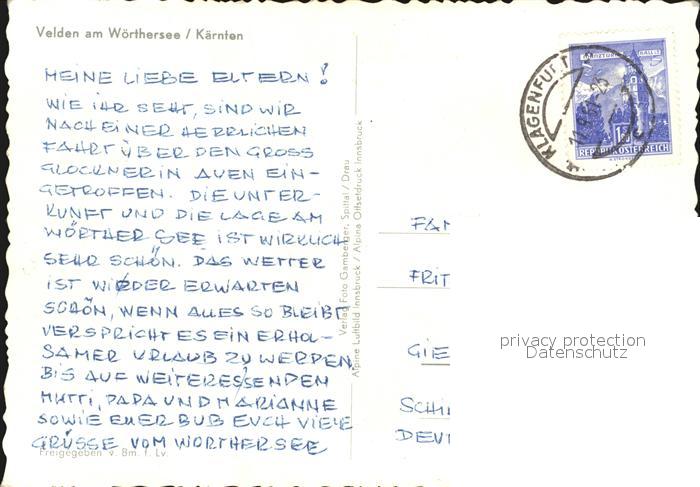 Velden am Wörthersee / Kärnten
MEINE LIEBE ELTERN!
WIE IHR SEHT, SIND WIR
NACH EINER HERRLICHEN
FAHRT ÜBER DEN GROSS
GLOCKNER IN AUEN EIN-
GETROFFEN. DIE UNTER-
KUNFT UND DIE LAGE AM
WÖRTHER SEE IST WIRKLICH
SEHR SCHÖN. DAS WETTER
IST WIEDER ERWARTEN
SCHÖN, WENN ALLES SO BLEIBT
VERSPRICHT ES EIN ERHOL-
SAMER URLAUB ZU WERDEN,
BIS AUF WEITERES SENDEN
MUTTI, PAPA UND MARIANNE
SOWIE EUER BUB EUCH VIELE
GRÜSSE VOM WÖRTHERSEE
Freigegeben v. Bm. f. Lv.
Verlag Foto Gamberger, Spittal / Drau
Alpine Luftbild Innsbruck / Alpina Offsetdruck Innsbruck
KLAGENFURT
REPUBLIK ÖSTERREICH
FAM
FRIT
GIE
SCHI
DEUT
privacy protection
Datenschutz